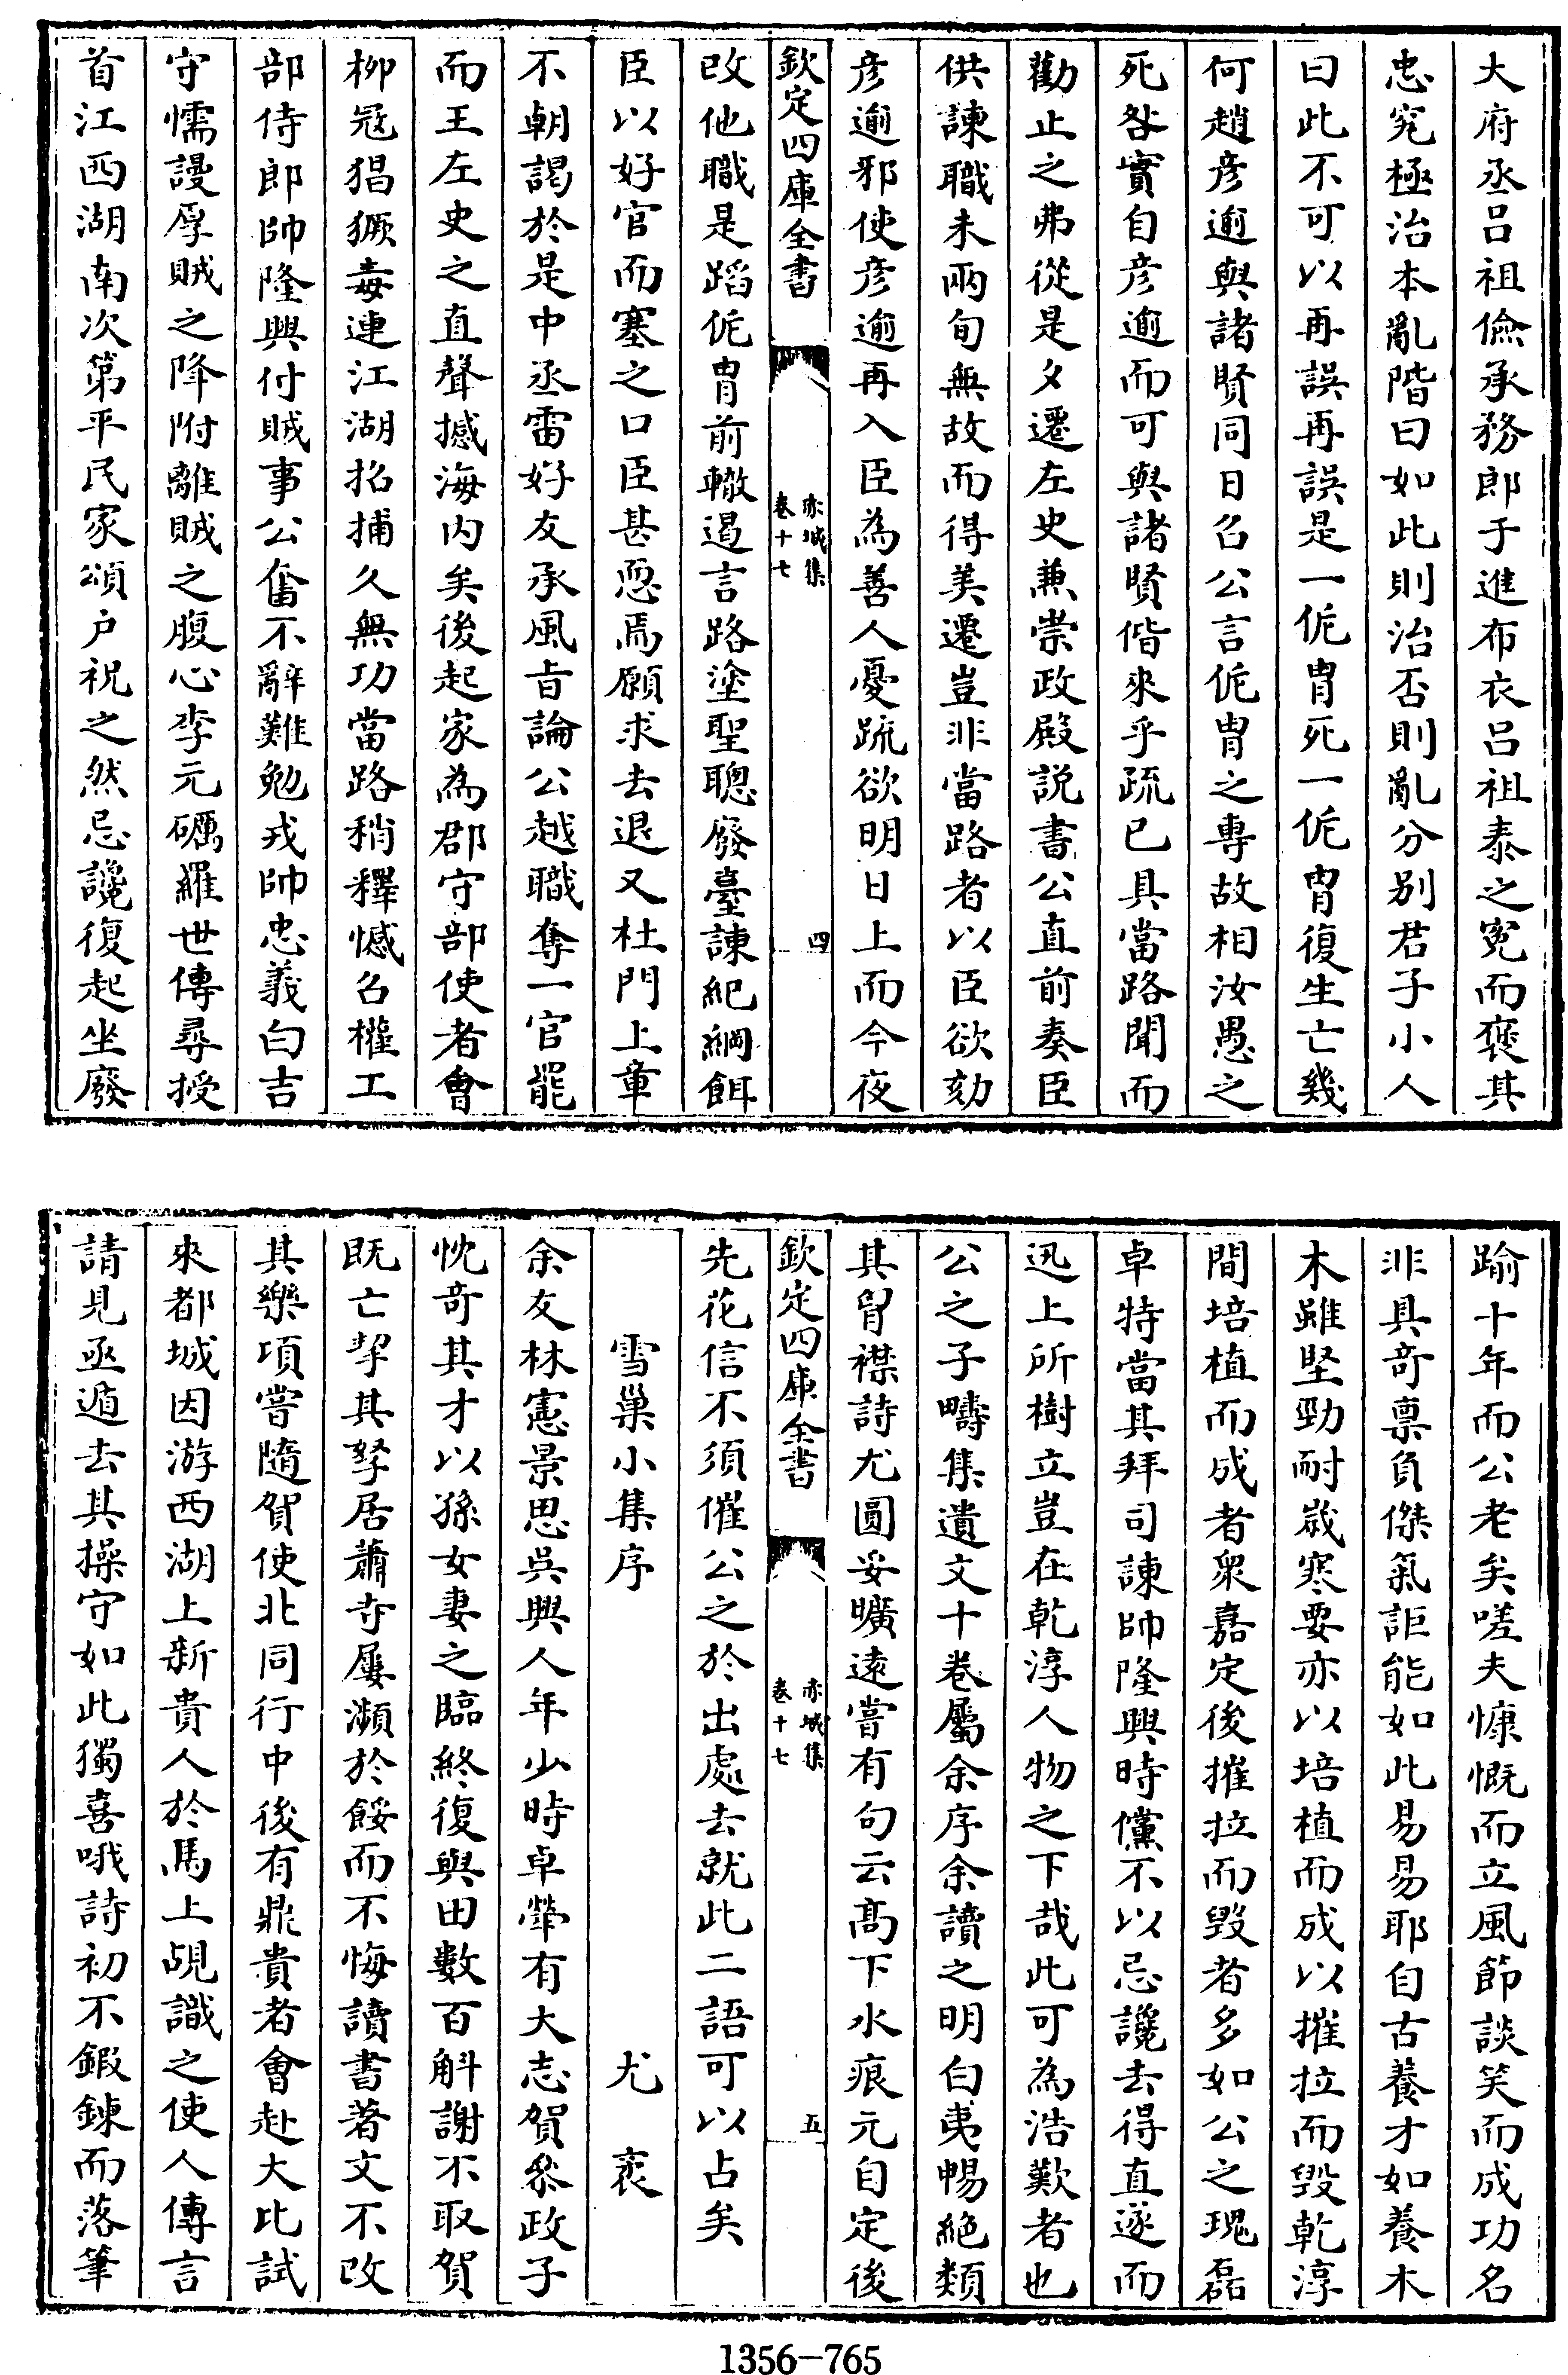 大府丞吕祖儉承務郎于進布衣吕祖泰之寃而褒其
忠究極治本亂階曰如此則治否則亂分别君子小人
曰此不可以再誤再誤是一侂胄死一侂胄復生亡幾
何趙彦逾與諸賢同日召公言侂胄之専故相汝愚之
死咎實自彦逾而可與諸賢偕來乎疏已具當路聞而
勸止之弗從是夕遷左史兼崇政殿説書公直前奏臣
供諫職未兩旬無故而得美遷豈非當路者以臣欲劾
彦逾邪使彦逾再入臣為善人憂疏欲明日上而今夜
欽定四庫全書
赤城集
卷十七
四
改他職是蹈侂胄前轍遏言路塗聖聰廢臺諫紀綱餌
臣以好官而塞之口臣甚恧焉願求去退又杜門上章
不朝謁於是中丞雷好友承風旨論公越職奪一官罷
而王左史之直聲撼海内矣後起家為郡守部使者會
柳冦猖獗毒連江湖招捕久無功當路稍釋憾召權工
部侍郎帥隆興付賊事公奮不辭難勉戎帥忠義白吉
守懦謾厚賊之降附離賊之腹心李元礪羅世傳尋授
首江西湖南次第平民家頌户祝之然忌讒復起坐廢
踰十年而公老矣嗟夫慷慨而立風節談笑而成功名
非具奇禀負傑氣詎能如此易易耶自古養才如養木
木雖堅勁耐歲寒要亦以培植而成以摧拉而毀乾淳
間培植而成者衆嘉定後摧拉而毀者多如公之瑰磊
卓特當其拜司諫帥隆興時儻不以忌讒去得直遂而
迅上所樹立豈在乾淳人物之下哉此可為浩歎者也
公之子疇集遺文十卷屬余序余讀之明白夷暢絶類
其胷襟詩尤圓妥曠遠嘗有句云髙下水痕元自定後
欽定四庫全書
赤城集
卷十七
五
先花信不須催公之於出處去就此二語可以占矣
雪巢小集序　尤袤
余友林憲景思吳興人年少時卓犖有大志賀叅政子
忱奇其才以孫女妻之臨終復與田數百斛謝不取賀
既亡挈其孥居蕭寺屢瀕於餒而不悔讀書著文不改
其樂項嘗隨賀使北同行中後有鼎貴者會赴大比試
來都城因游西湖上新貴人於馬上覘識之使人傳言
請見亟遁去其操守如此獨喜哦詩初不鍜鍊而落筆
1356-765